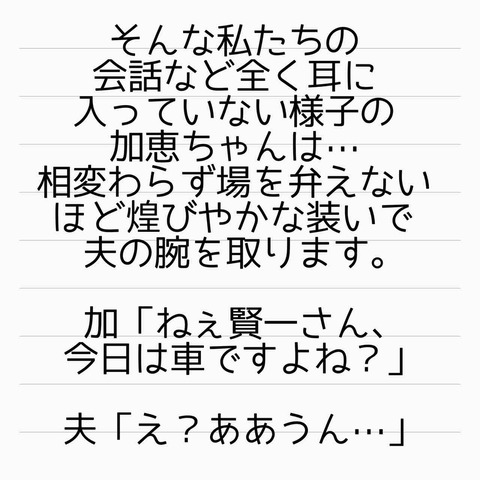 そんな私たちの
会話など全く耳に
入っていない様子の
加恵ちゃんは…
相変わらず場を弁えない
ほど煌びやかな装いで
夫の腕を取ります。
加「ねぇ賢一さん、
今日は車ですよね？」
夫「え？ああうん…」